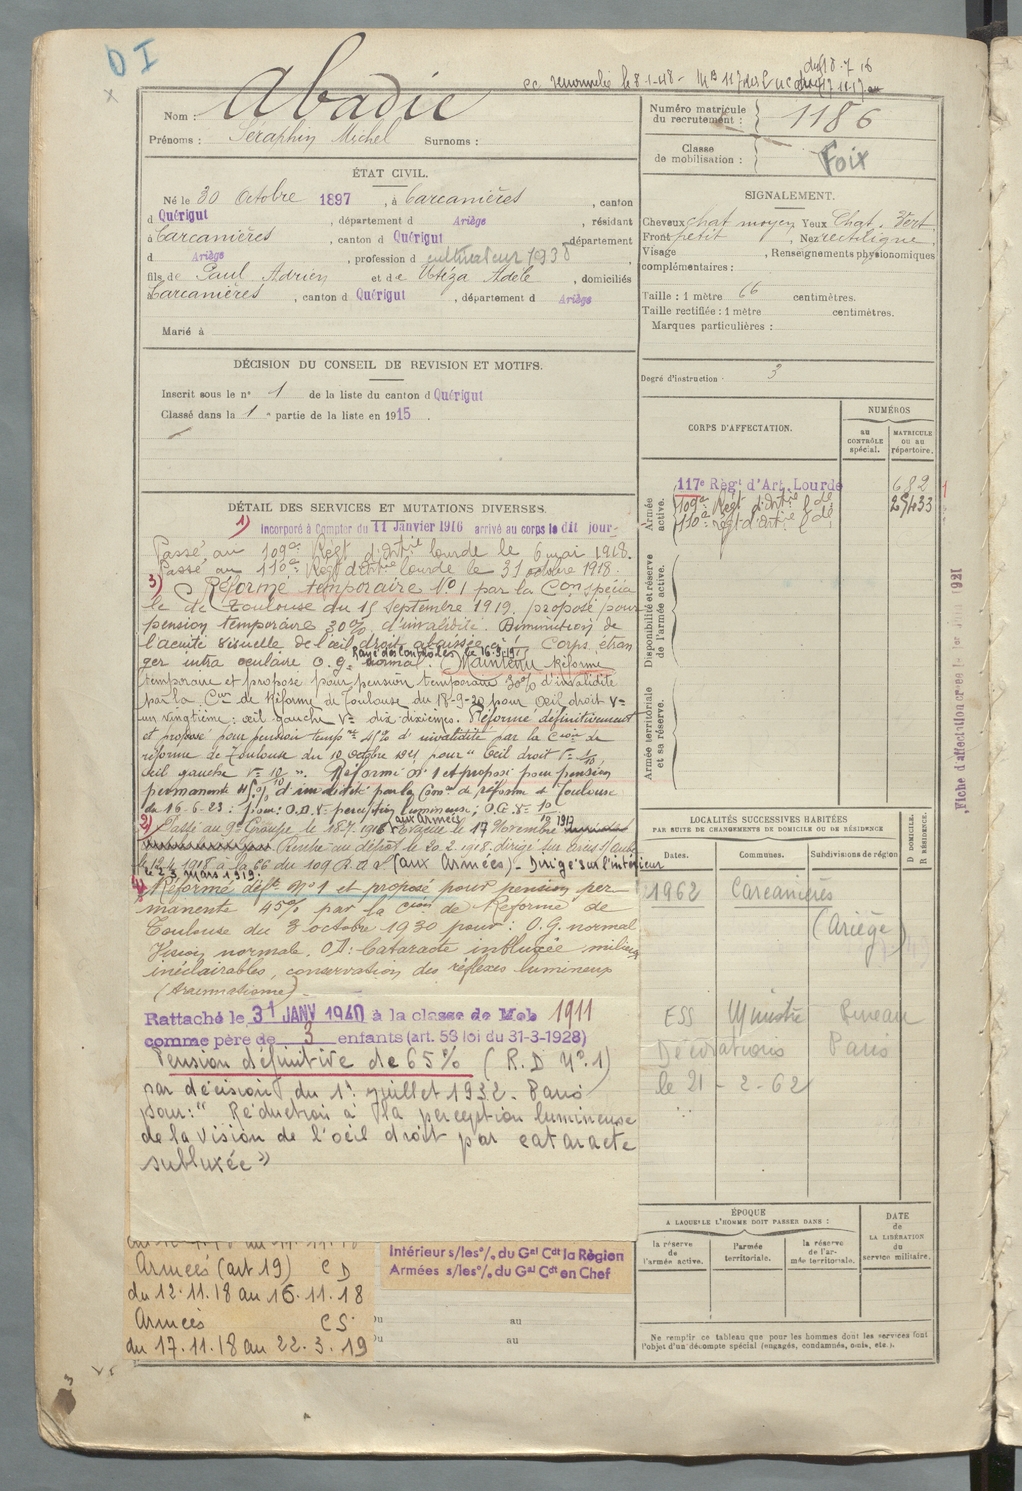 D I
x
Nom : Abadie
Prénoms : Séraphin Michel Surnoms :
ec renouvelée le 8-1-48 -
du 18.7.16
Numéro matricule du recrutement : 1186
Classe de mobilisation : Foix
ÉTAT CIVIL.
Né le 30 Octobre 1897 , à Carcanières , canton
d Quérigut , département d Ariège , résidant
à Carcanières , canton d Quérigut , département
d Ariège , profession d cultivateur 1938 ,
fils de Paul Adrien et de Utéza Adèle , domiciliés
Carcanières , canton d Quérigut , département d Ariège
Marié à
SIGNALEMENT.
Cheveux chat moyen Yeux Chat. Vert
Front petit , Nez rectiligne ,
Visage , Renseignements physionomiques
complémentaires :
Taille : 1 mètre 66 centimètres.
Taille rectifiée : 1 mètre centimètres.
Marques particulières :
Degré d'instruction . 3
DÉCISION DU CONSEIL DE REVISION ET MOTIFS.
Inscrit sous le n° 1 de la liste du canton d Quérigut
Classé dans la 1 e partie de la liste en 1915 .
CORPS D'AFFECTATION.
NUMÉROS
au CONTRÔLE spécial.
MATRICULE ou au répertoire.
Armée active.
117e Régt d'Art. Lourde 682
109e Régt d'Artie Lde 25433
110e régt d'Artie Lde
Disponibilité et réserve de l'armée active.
Armée territoriale et sa réserve.
DÉTAIL DES SERVICES ET MUTATIONS DIVERSES.
1) Incorporé à Compter du 11 Janvier 1916 arrivé au corps le dit jour-
Passé au 109e Régt d'Artie lourde le 6 mai 1918.
Passé au 110e Régt d'Artie lourde le 31 octobre 1918.
3) Réformé temporaire N°1 par la Con spécia
le de Toulouse du 15 Septembre 1919, proposé pour
pension temporaire 30% d'invalidité. Diminution de
l'acuité visuelle de l'œil droit abaissée à Corps étran
ger intra oculaire O.G. normal. Maintenu Réformé
Rayé des Contrôles le 16.9.19
temporaire et proposé pour pension temporaire 30% d'invalidité
par la Con de Réforme de Toulouse du 18-9-20 pour œil droit V=
un vingtième : œil gauche V= dix dixièmes. Réformé définitivement
et proposé pour pension temp re 45% d'invalidité par la Con de
réforme de Toulouse du 10 octobre 1921 pour " Œil droit V= 1/10,
œil gauche V= 10/10 ". Réformé N°1 et proposé pour pension
permanente 45% d'invalidité par la Con de réforme de Toulouse
du 16-6-23 : pour : O.D. V= perception lumineuse ; O.G. V= 10/10
2) Passé au 9e Groupe le 18.7.1916 (aux Armées) Evacué le 17 Novembre 1917
Rentré au dépôt le 20.2.1918. dirigé sur
le 12.4.1918 à la 66 du 109 R.A.L (aux Armées) - Dirigé sur l'intérieur
le 23 mars 1919.
4) Réformé déft N°1 et proposé pour pension per
manente 45% par la Con de Réforme de
Toulouse du 3 octobre 1930 pour : O.G. normal
Vision normale. O.D. Cataracte subluxée milieux
inéclairables, conservation des réflexes lumineux
(traumatisme)
Rattaché le 31 JANV 1940 à la classe de Mob 1911
comme père de 3 enfants (art. 58 loi du 31-3-1928)
Pension définitive de 65% (R.D N°.1)
par décision du 1er juillet 1932. Paris
pour : " Réduction à la perception lumineuse
de la vision de l'œil droit par cataracte
subluxée »
Armées (art 19) CD
du 12.11.18 au 16.11.18
Armées CS.
du 17.11.18 au 22.3.19
Intérieur s/les %. du Gal Cdt la Région
Armées s/les %. du Gal Cdt en Chef
Du au
Du au
LOCALITÉS SUCCESSIVES HABITÉES
PAR SUITE DE CHANGEMENTS DE DOMICILE OU DE RÉSIDENCE
Dates. Communes. Subdivisions de région D DOMICILE. R RÉSIDENCE.
1962 Carcanières
(Ariège)
ESS Ministre Bureau
Décorations Paris
le 21 - 2 - 62
ÉPOQUE
A LAQUELLE L'HOMME DOIT PASSER DANS :
la réserve de l'armée active.
l'armée territoriale.
la réserve de l'armée territoriale.
DATE de LA LIBÉRATION du service militaire.
Ne remplir ce tableau que pour les hommes dont les services font
l'objet d'un décompte spécial (engagés, condamnés, omis, etc.).
Fiche d'affectation créée le 1er 1921